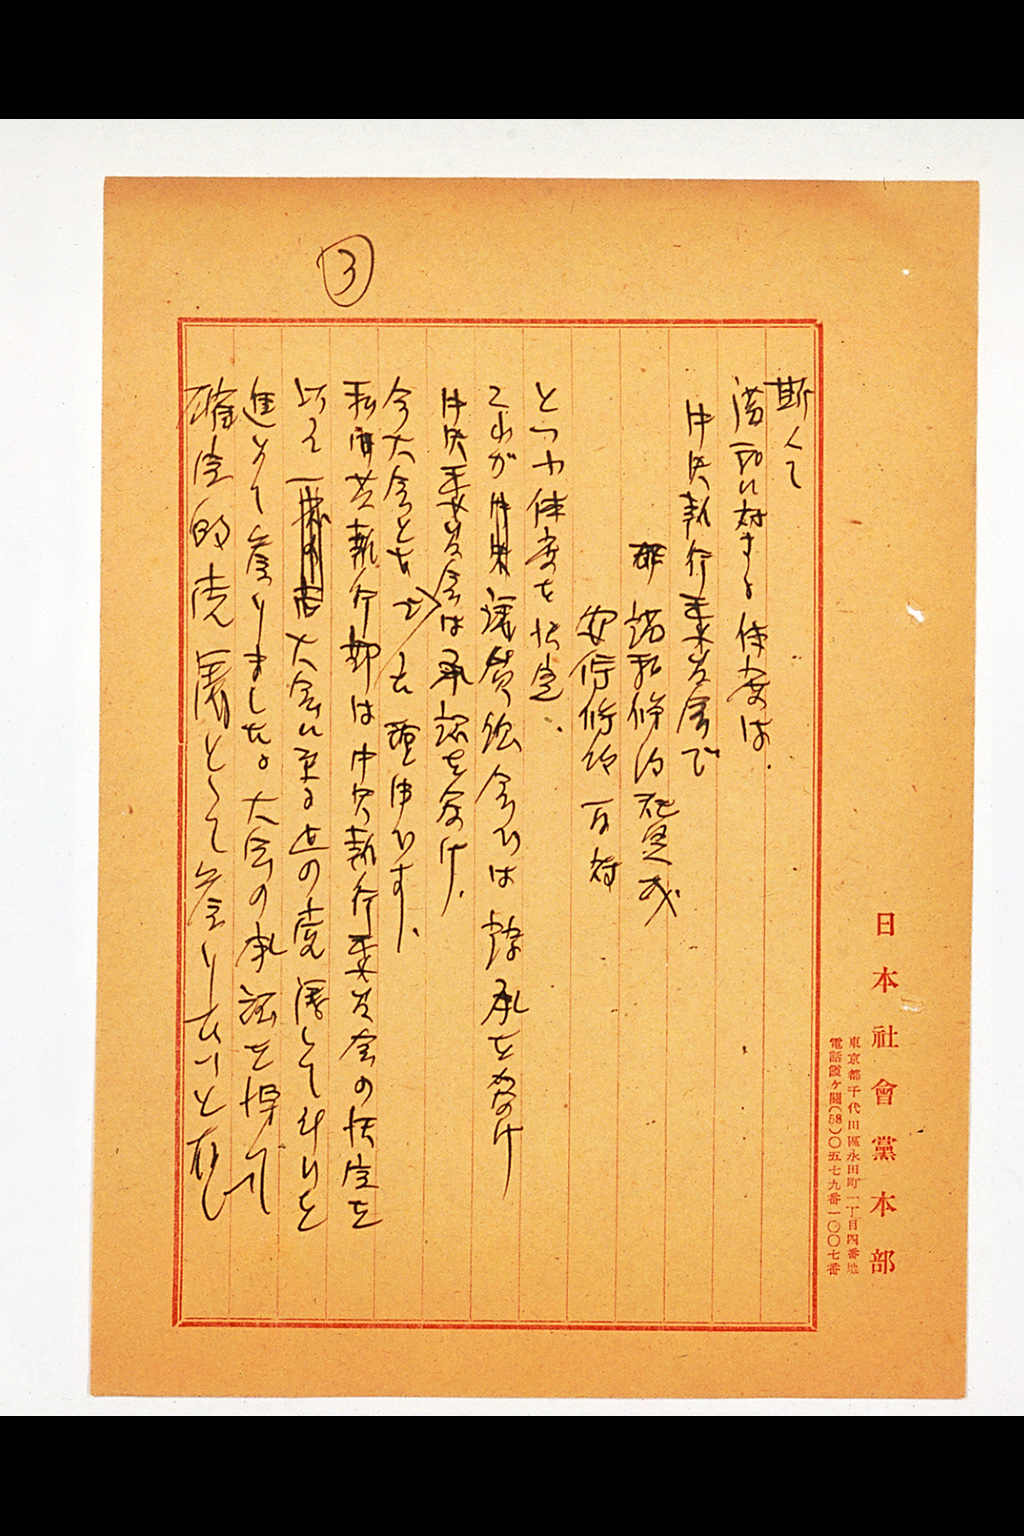 ③
斯くて
満配に対する体度は.
中央執行委員会で
講和條約賛成
安保條約反対
といふ体度を決定.
これが議員総会では諒承を受け
中央委員会は承認を受け.
今大会となった理由です.
私shared執行部は中央執行委員会の決定を
以って大会に至る迄の党活して斗いを
進めて参りました。大会の承認を得て
確定的党活として参りたいと存じ
日本社會黨本部
東京都千代田區永田町一丁目四番地
電話霞ヶ關(58)〇五七九番一〇〇七番